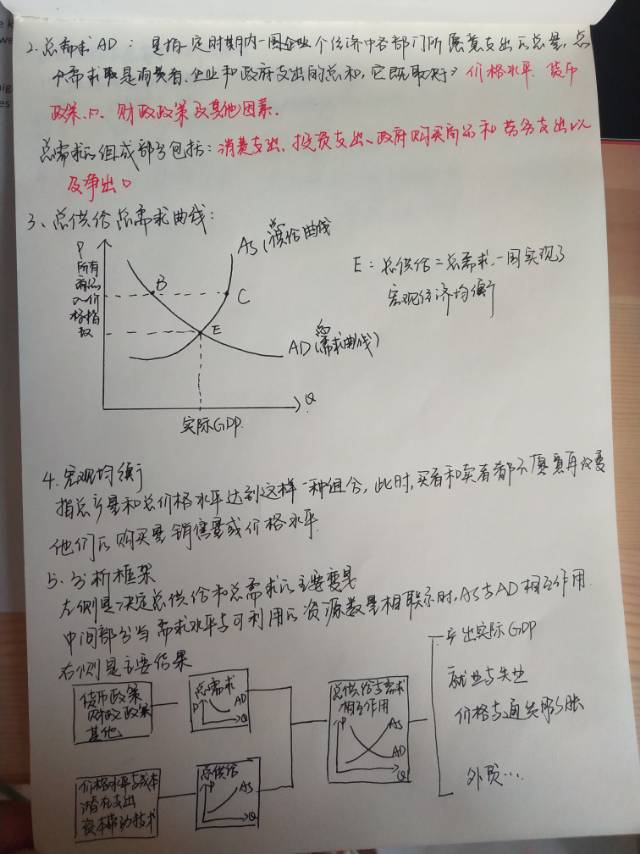 2. 总需求 AD：是指一定时期内一国企业个经济中各部门所愿意支出的总量，总
需求取是消费者、企业和政府支出的总和，它既取决于价格水平 货币
政策、 财政政策及其他因素.
总需求的组成部分包括：消费支出、投资支出、政府购买商品和劳务支出以
及净出口
3、总供给总需求曲线：
P
所有
商品
价
格指
数
AS (总供给曲线
B
C
E
AD (总需求曲线)
Q
实际GDP
E：总供给=总需求，一国实现了
宏观经济均衡
4. 宏观均衡
指总产量和总价格水平达到这样一种组合，此时，买者和卖者都不愿意再改变
他们的购买量、销售量或价格水平.
5. 分析框架
左侧是决定总供给和总需求的主要变量
中间部分当需求水平与可利用的资源数量相联系时，AS与AD相互作用
右侧是主要结果
货币政策
财政政策
其他
总需求
P
AD
Q
价格水平与成本
潜在支出
资本劳动技术
总供给
P
AS
Q
总供给与需求
相互作用
P
AS
AD
Q
产出实际GDP
就业与失业
价格与通货膨胀
外贸…